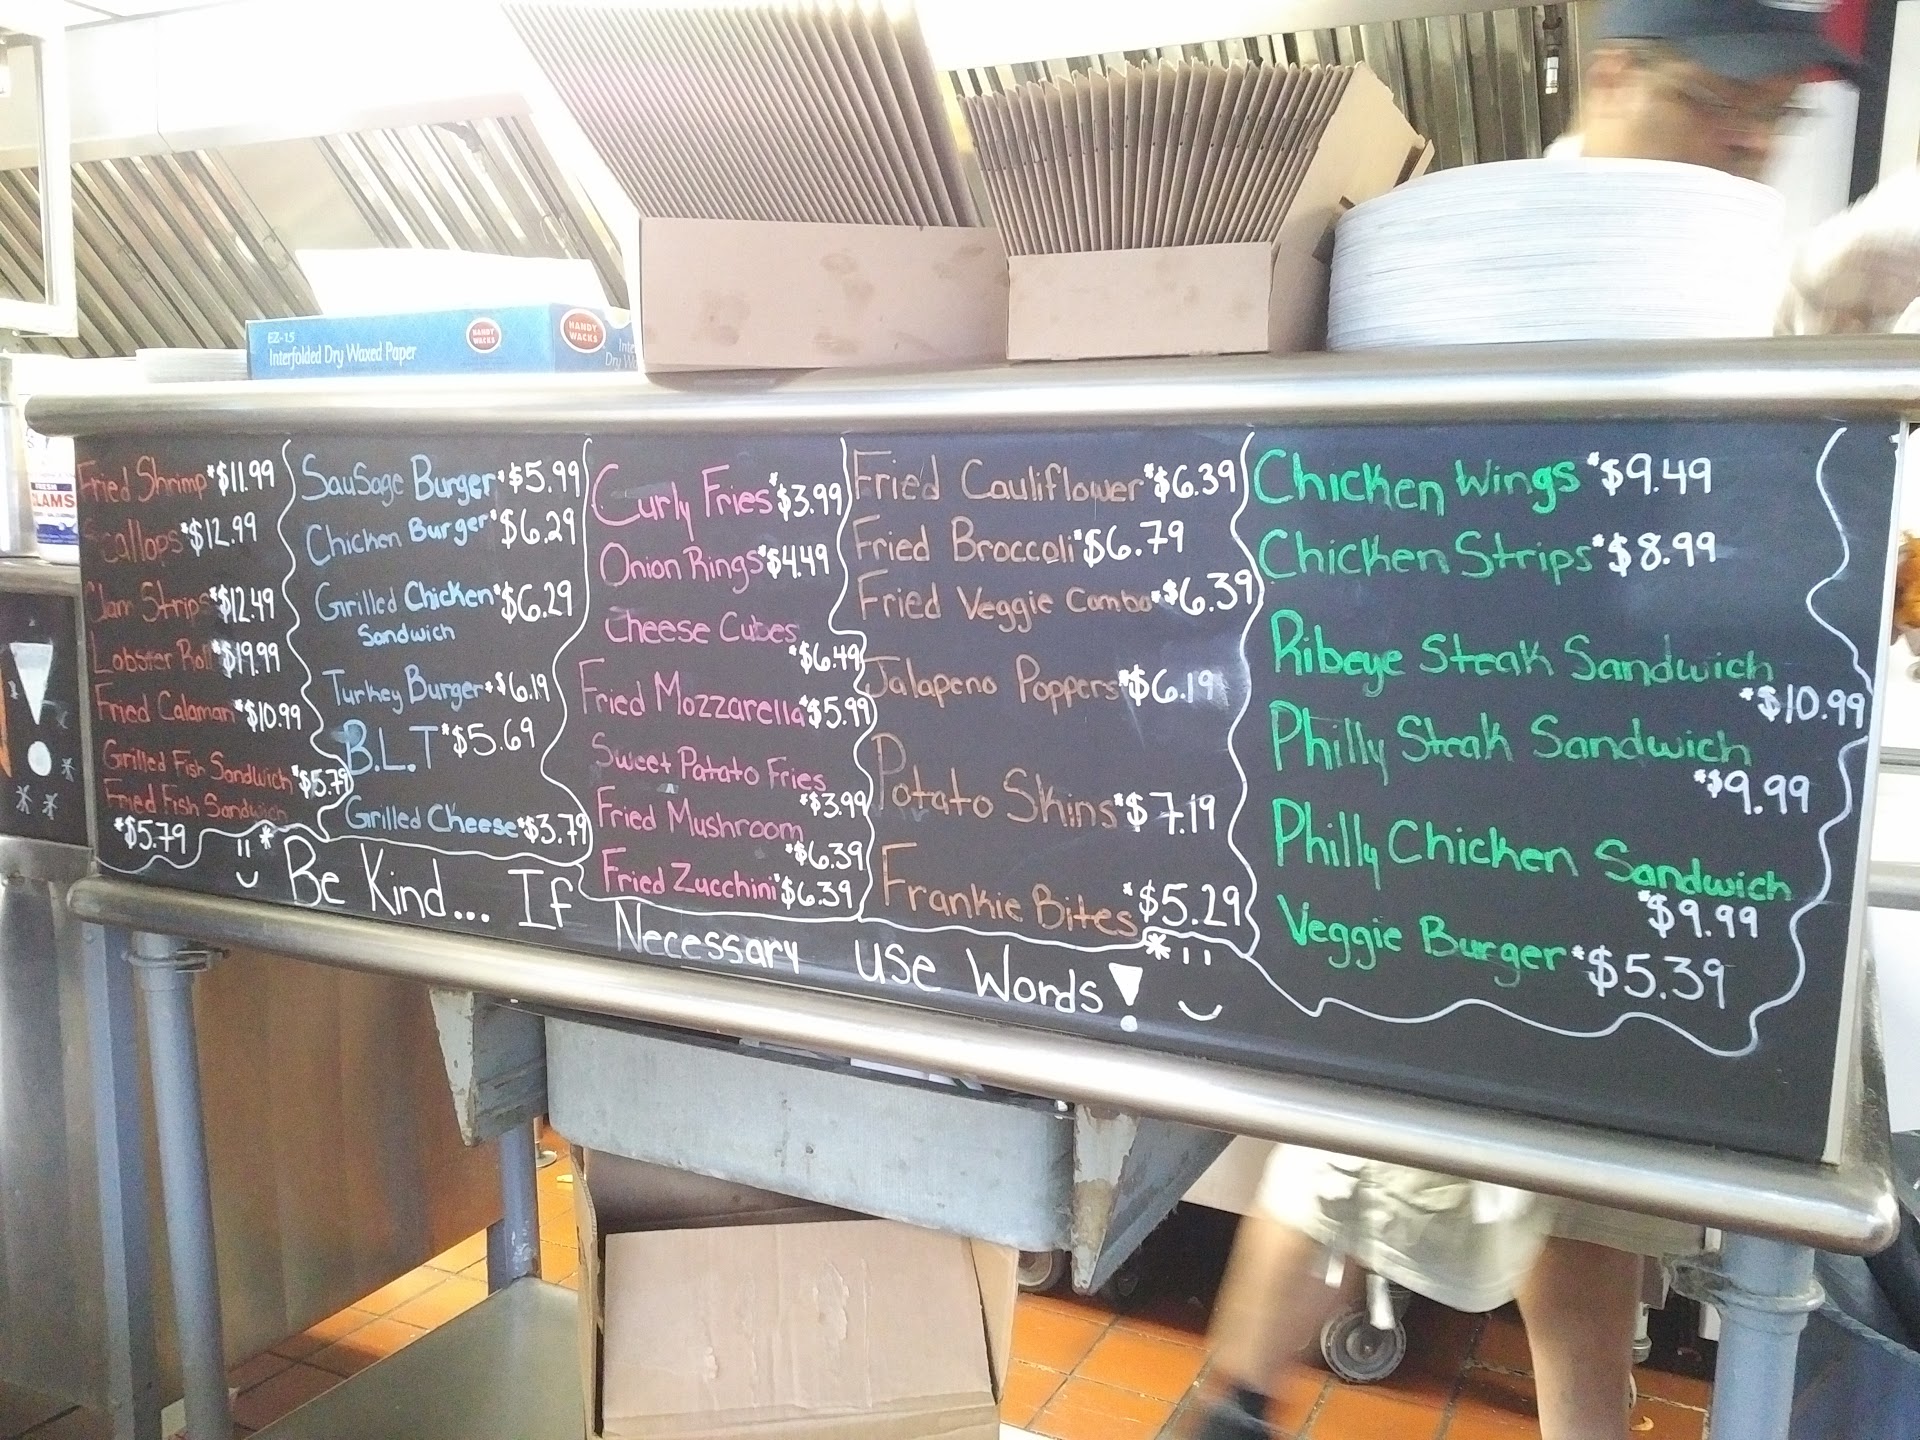 EZ-15
Interfolded Dry Waxed Paper
HANDY WACKS
HANDY WACKS
Inte
Dry W
CLAMS
Fried Shrimp *$11.99
Scallops *$12.99
Clam Strips *$12.49
Lobster Roll *$19.99
Fried Calamari *$10.99
Grilled Fish Sandwich *$5.79
Fried Fish Sandwich
*$5.79
Sausage Burger *$5.99
Chicken Burger *$6.29
Grilled Chicken *$6.29
Sandwich
Turkey Burger *$6.19
B.L.T *$5.69
Grilled Cheese *$3.79
Curly Fries *$3.99
Onion Rings *$4.49
Cheese Cubes
*$6.49
Fried Mozzarella *$5.99
Sweet Potato Fries
*$3.99
Fried Mushroom
*$6.39
Fried Zucchini *$6.39
Fried Cauliflower *$6.39
Fried Broccoli *$6.79
Fried Veggie Combo *$6.39
Jalapeno Poppers *$6.19
Potato Skins *$7.19
Frankie Bites *$5.29
Chicken Wings *$9.49
Chicken Strips *$8.99
Ribeye Steak Sandwich
*$10.99
Philly Steak Sandwich
*$9.99
Philly Chicken Sandwich
*$9.99
Veggie Burger *$5.39
Be Kind... If Necessary use Words!